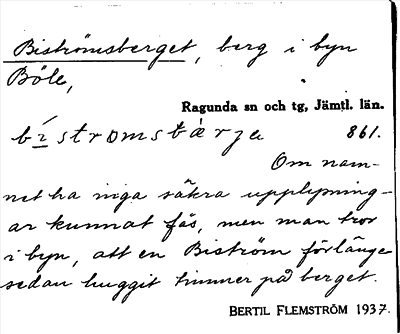 Biströmsberget, berg i byn
Böle,
Ragunda sn och tg, Jämtl. län.
bìstromsbárje 861.
Om nam-
net ha inga säkra upplysning-
ar kunnat fås, men man tror
i byn, att en Biström för länge
sedan huggit timmer på berget.
BERTIL FLEMSTRÖM 1937.